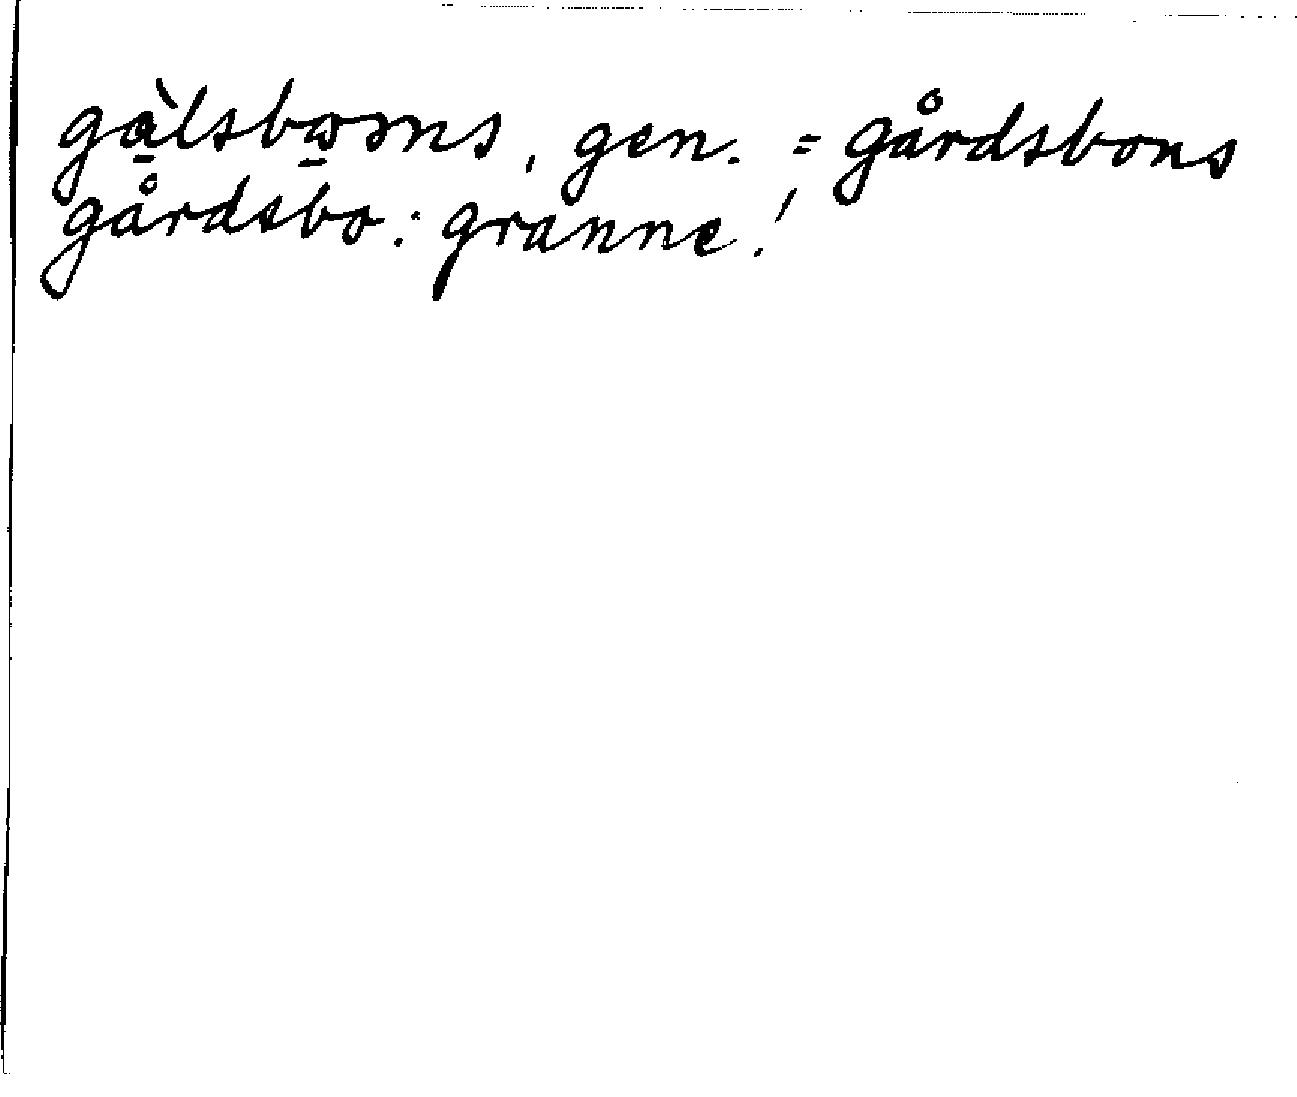 gὰ̠lsbω̠əns, gen. = gårdsbons
gårdsbo: granne!